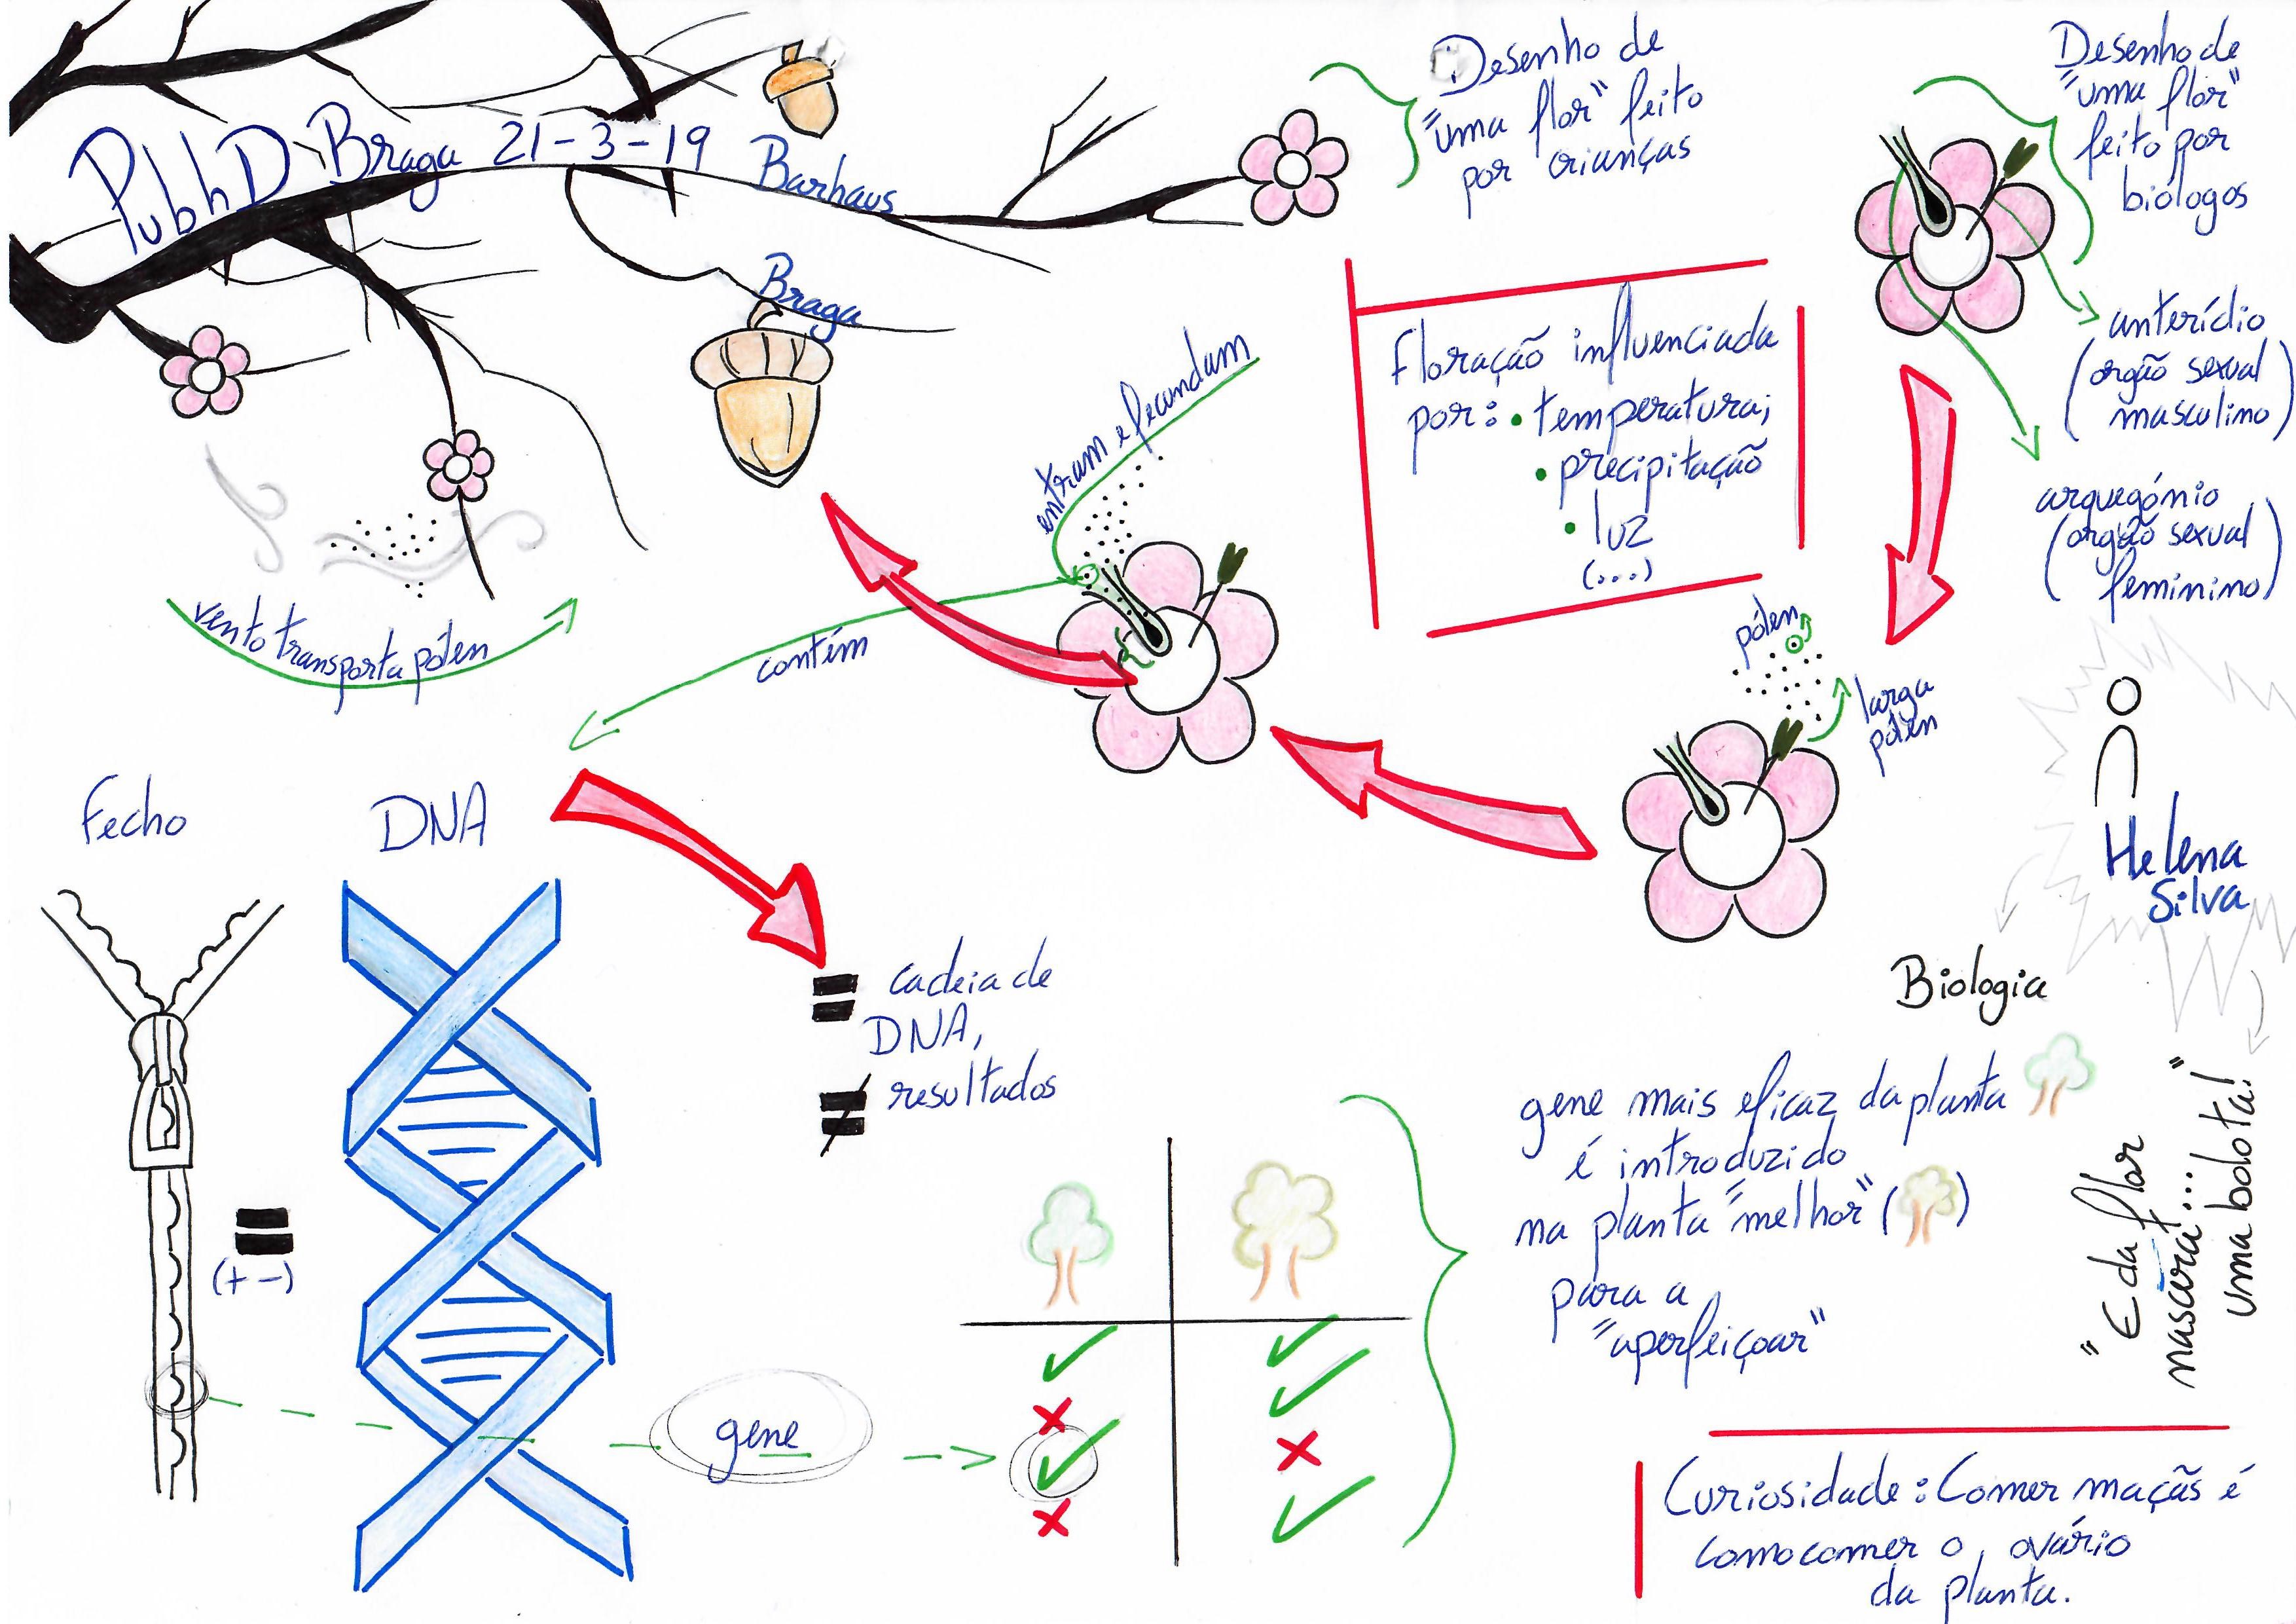 PubhD Braga 21-3-19
Barhaus
Braga
Desenho de
"uma flor" feito
por crianças
Desenho de
"uma flor"
feito por
biólogos
anterídio
(orgão sexual
masculino)
arquegónio
(orgão sexual
feminino)
Floração influenciada
por: • temperatura;
• precipitação
• luz
(...)
entram e fecundam
vento transporta pólen
contém
pólen
larga
pólen
Helena
Silva
Biologia
"E da flor
nascerá...
uma bolota!"
Fecho
DNA
=
(+-)
= cadeia de
DNA,
≠ resultados
gene
gene mais eficaz da planta
é introduzido
na planta "melhor" ( )
para a
"aperfeiçoar"
Curiosidade: Comer maçãs é
como comer o ovário
da planta.